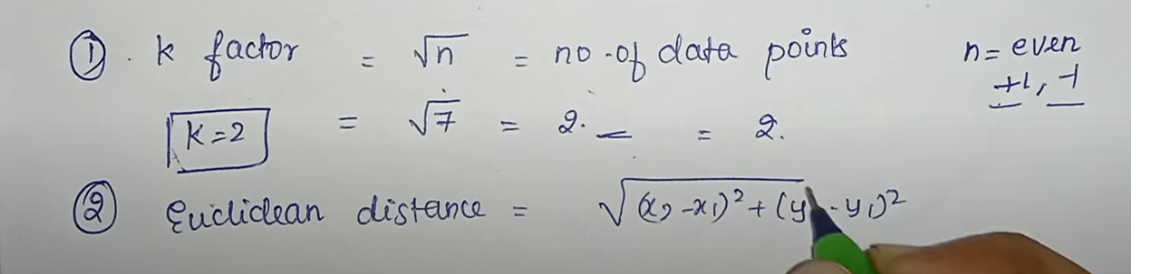 ① . k factor = √n = no. of data points n = even
+1, -1
k=2 = √7 = 2. — = 2.
② Euclidean distance = √(x₂ - x₁)² + (y - y₁)²